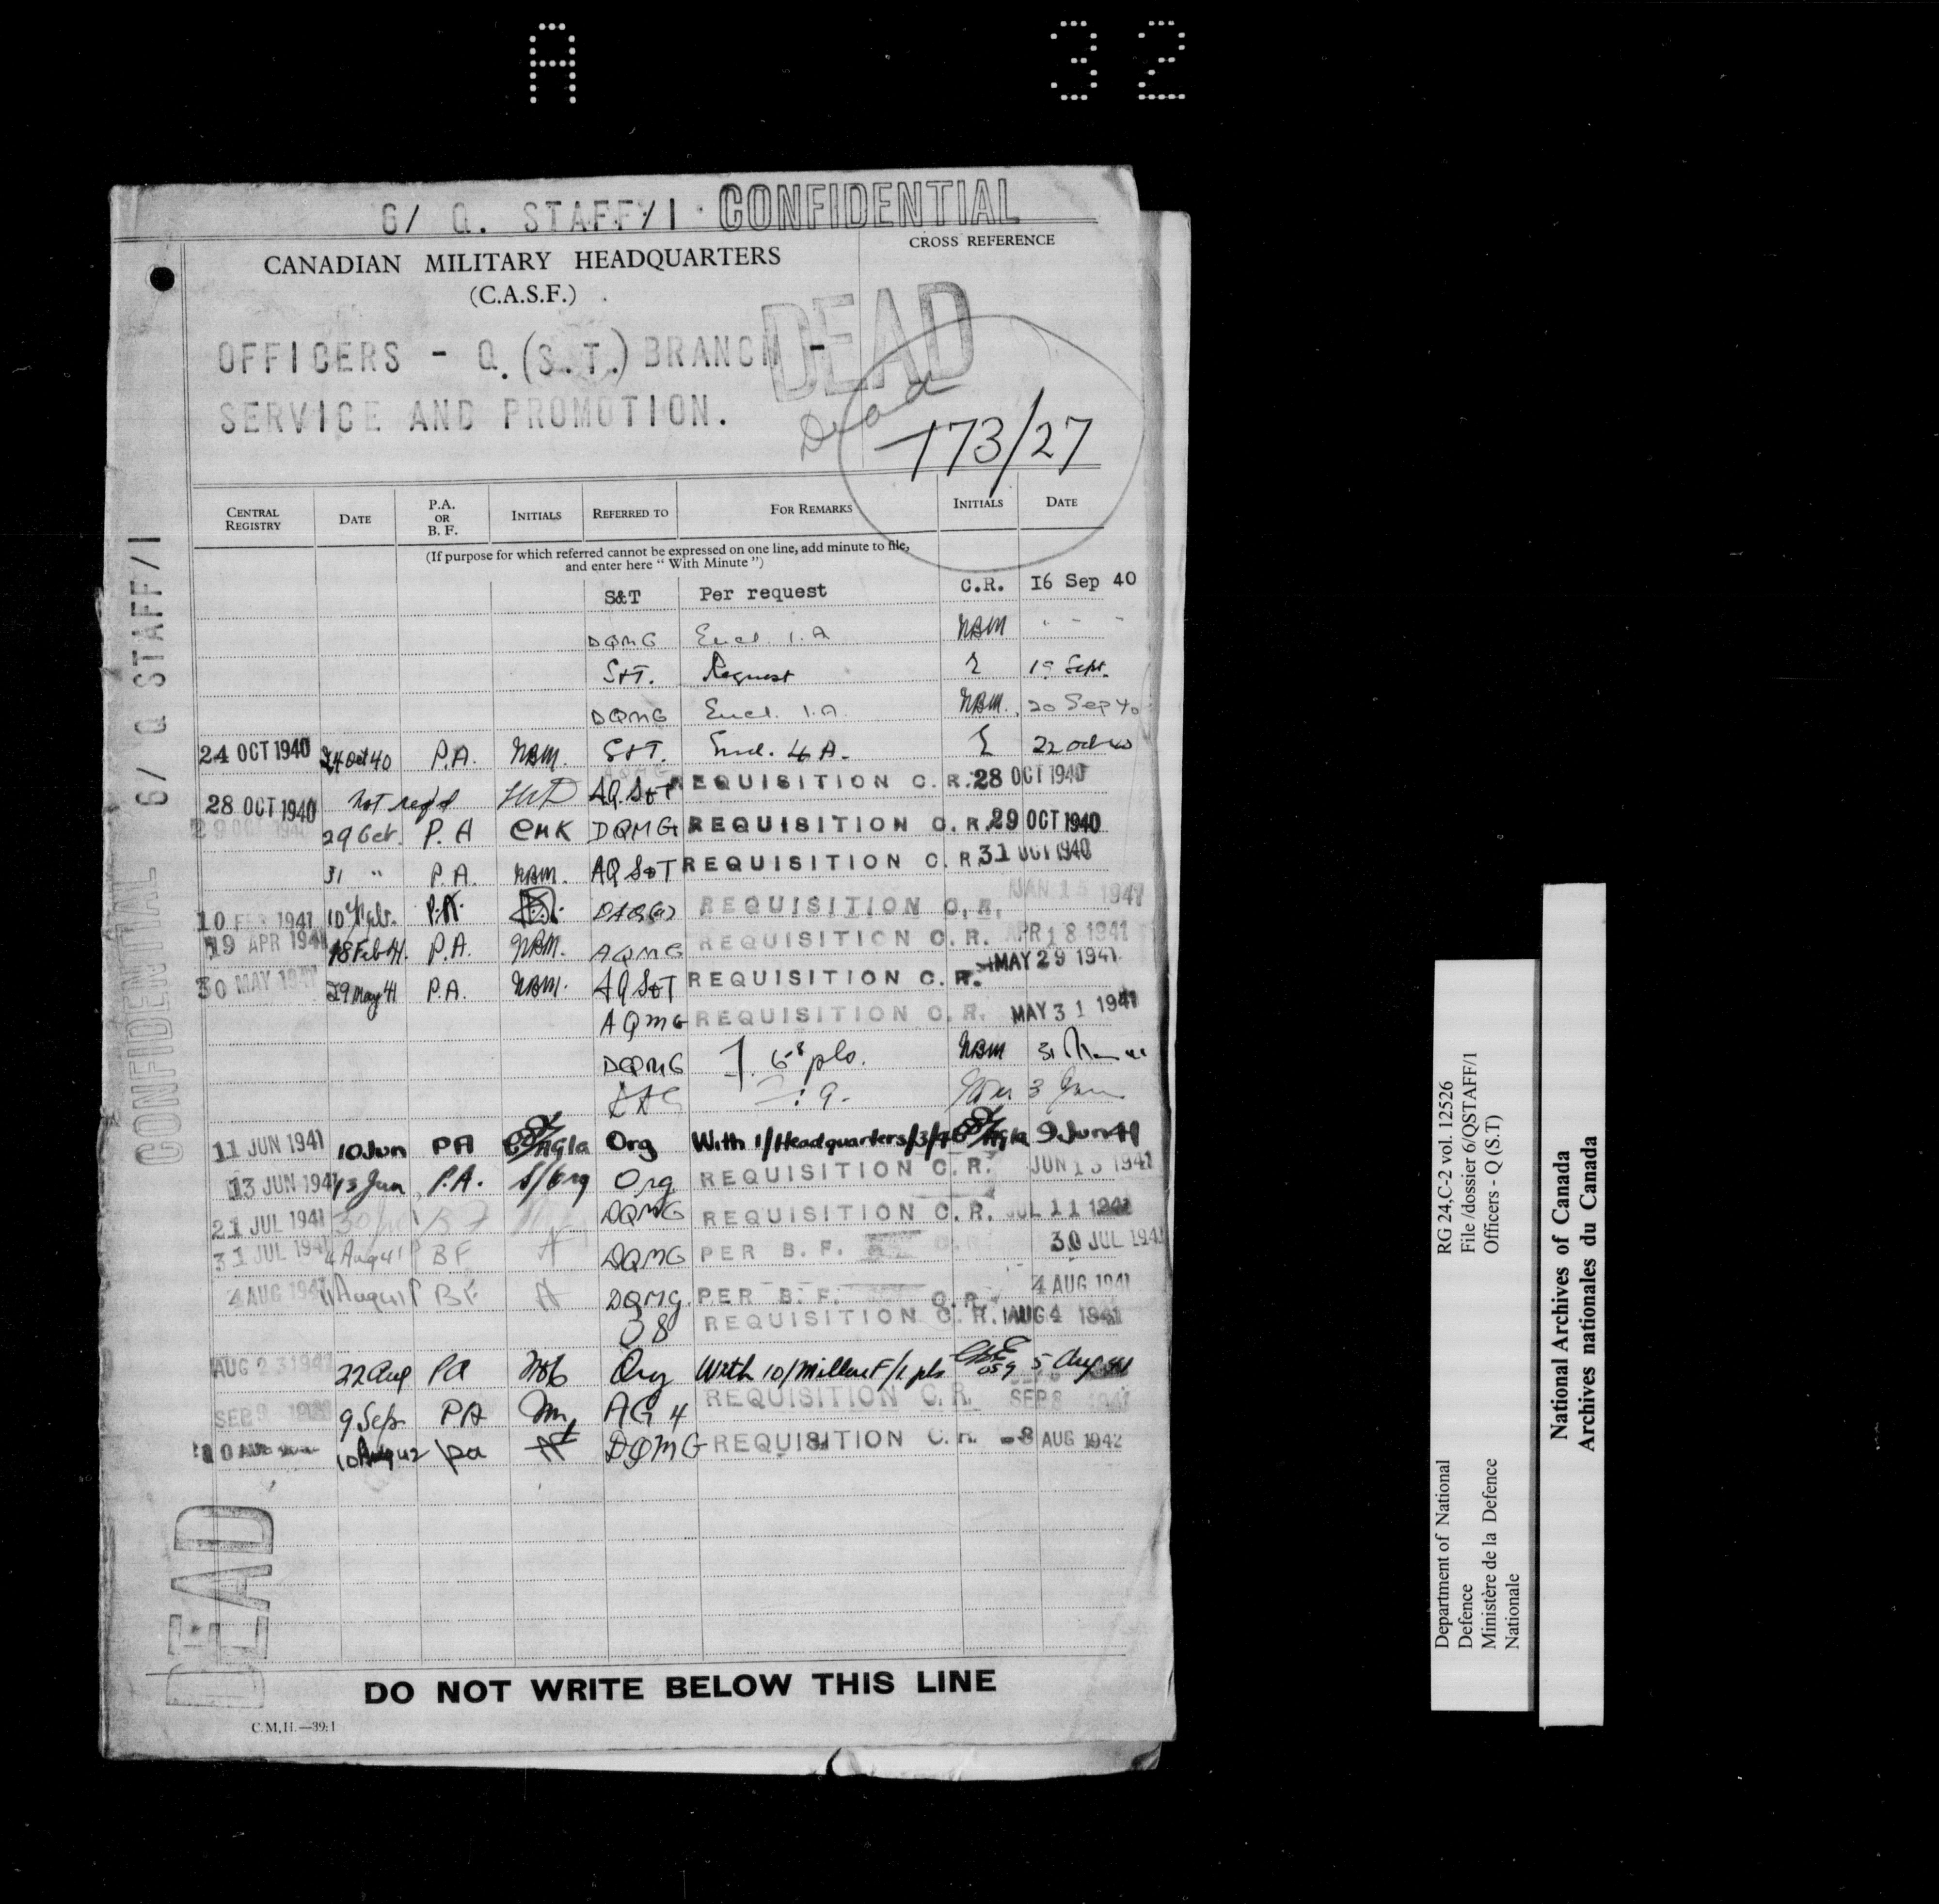 A 32
6/ Q. STAFF/1 CONFIDENTIAL
CROSS REFERENCE
CANADIAN MILITARY HEADQUARTERS
(C.A.S.F.)
DEAD
OFFICERS - Q.(S.T.) BRANCH -
SERVICE AND PROMOTION.
Dead
173/27
CENTRAL REGISTRY DATE P.A. OR B.F. INITIALS REFERRED TO FOR REMARKS INITIALS DATE
(If purpose for which referred cannot be expressed on one line, add minute to file,
and enter here "With Minute")
S&T Per request C.R. 16 Sep 40
DQMG Encl. 1.A NBM " " "
S&T. Request 19 Sept.
DQMG Encl. 1.A. NBM. 20 Sep 40
24 OCT 1940 24 Oct 40 P.A. NBM. S&T. Encl. 4A. 22 Oct 40
28 OCT 1940 Not reqd AQ S&T REQUISITION C.R. 28 OCT 1940
29 OCT 1940 29 Oct. P.A CMK DQMG REQUISITION C.R. 29 OCT 1940
31 " P.A. NBM. AQ S&T REQUISITION C.R. 31 OCT 1940
10 FEB 1941 10 Feb. P.A. REQUISITION C.R. JAN 15 1941
19 APR 1941 18 Feb 41. P.A. NBM. AQMG REQUISITION C.R. APR 18 1941
30 MAY 1941 29 May 41 P.A. NBM. AQ S&T REQUISITION C.R. MAY 29 1941
AQMG REQUISITION C.R. MAY 31 1941
DQMG pls. NBM 31
3 Jun
11 JUN 1941 10 Jun PA AG1a Org With 1/Headquarters/3/ AG1a 9 Jun 41
13 JUN 1941 13 Jun P.A. Org REQUISITION C.R. JUN 13 1941
21 JUL 1941 BF DQMG REQUISITION C.R. JUL 11 1941
31 JUL 1941 4 Aug 41 BF DQMG PER B.F. 30 JUL 1941
4 AUG 1941 11 Aug 41 BF DQMG. PER B.F. C.R. 4 AUG 1941
REQUISITION C.R. AUG 4 1941
AUG 23 1941 22 Aug PA Org With 10/Miller F/1 pls 5 Aug 41
SEP 9 9 Sep PA AG 4 REQUISITION C.R. SEP 8 1941
10 Aug 42 pa DQMG REQUISITION C.R. 8 AUG 1942
DO NOT WRITE BELOW THIS LINE
C.M.H.—39:1
6/ Q STAFF/1
CONFIDENTIAL
DEAD
Department of National Defence
Ministère de la Defence Nationale
RG 24,C-2 vol. 12526
File /dossier 6/QSTAFF/1
Officers - Q (S.T)
National Archives of Canada
Archives nationales du Canada